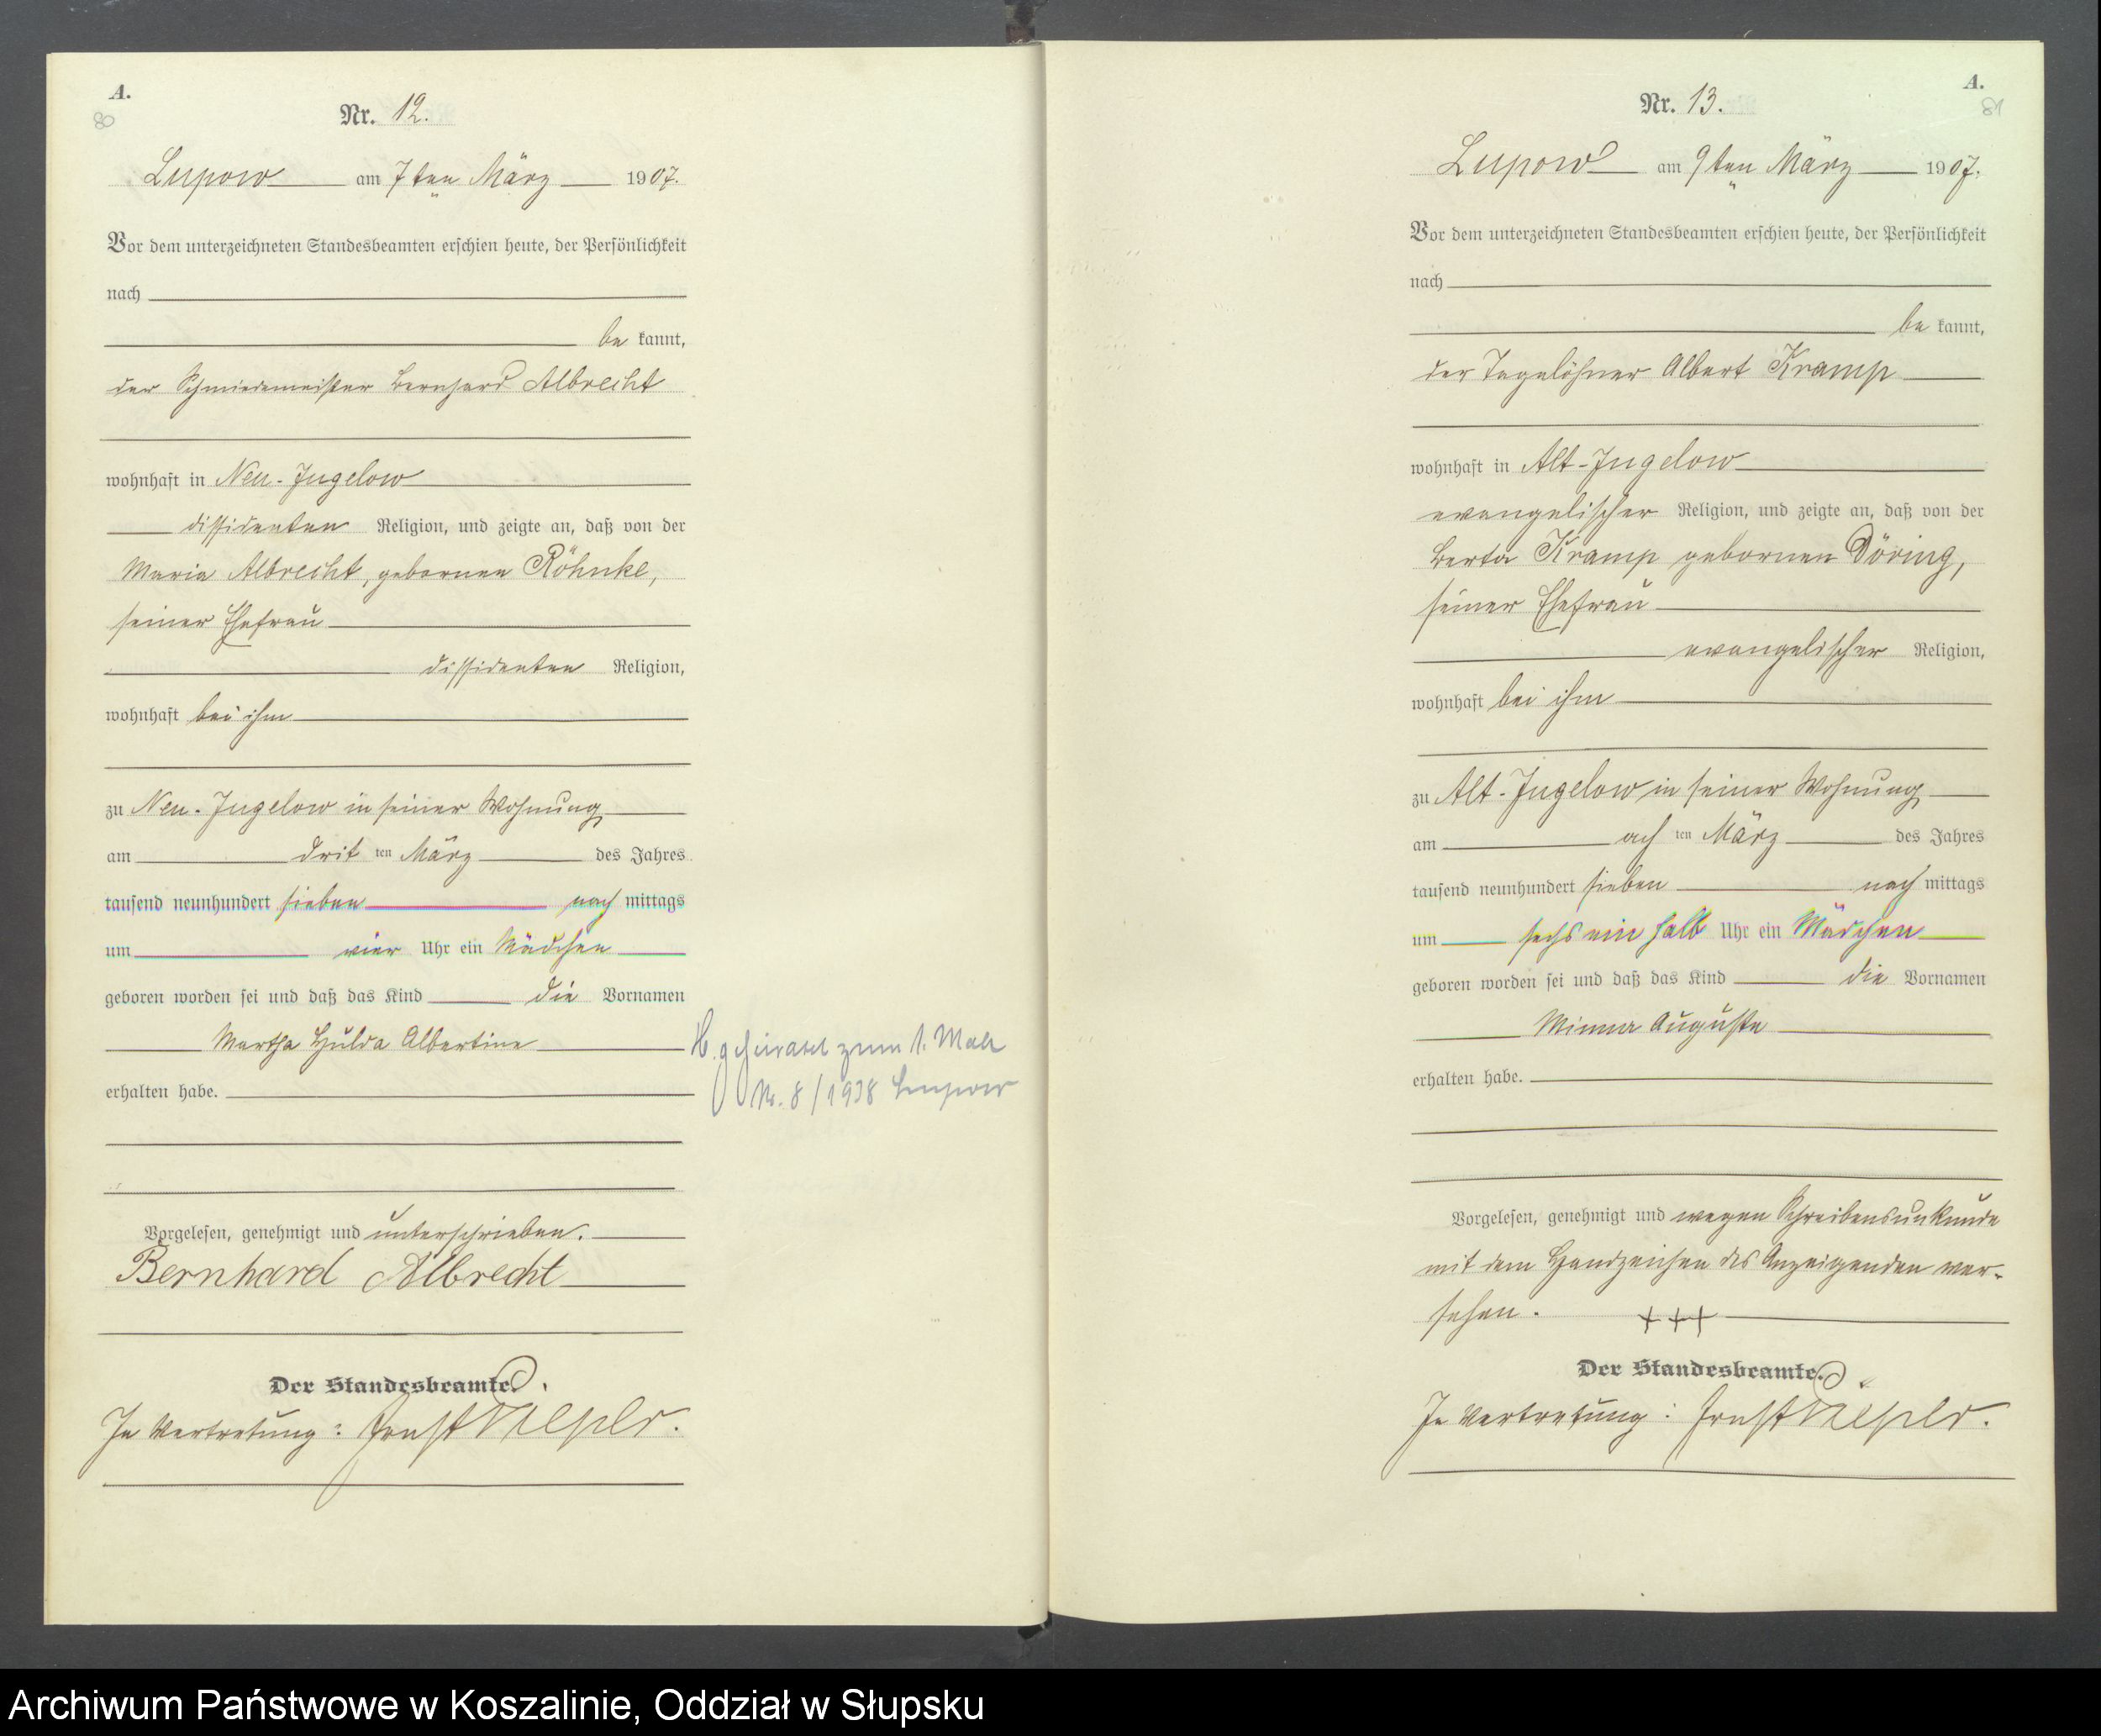 A.
80
Nr. 12.
Lupow am 7ten März 1907.
Vor dem unterzeichneten Standesbeamten erschien heute, der Persönlichkeit
nach
be kannt,
der Schmiedemeister Bernhard Albrecht
wohnhaft in Neu-Jugelow
dissidenten Religion, und zeigte an, daß von der
Maria Albrecht, gebornen Röhnke,
seiner Ehefrau
dissidenten Religion,
wohnhaft bei ihm
zu Neu-Jugelow in seiner Wohnung
am drit ten März des Jahres
tausend neunhundert sieben nach mittags
um vier Uhr ein Mädchen
geboren worden sei und daß das Kind die Vornamen
Martha Hulda Albertine
erhalten habe.
geheiratet zum 1. Male
Nr. 8/1938 Lupow
Vorgelesen, genehmigt und unterschrieben.
Bernhard Albrecht
Der Standesbeamte.
In Vertretung: Ernst
A.
81
Nr. 13.
Lupow am 9ten März 1907.
Vor dem unterzeichneten Standesbeamten erschien heute, der Persönlichkeit
nach
be kannt,
der Tagelöhner Albert Kramp
wohnhaft in Alt-Jugelow
evangelischer Religion, und zeigte an, daß von der
Berta Kramp gebornen Döring,
seiner Ehefrau
evangelischer Religion,
wohnhaft bei ihm
zu Alt-Jugelow in seiner Wohnung
am ach ten März des Jahres
tausend neunhundert sieben nach mittags
um sechs ein halb Uhr ein Mädchen
geboren worden sei und daß das Kind die Vornamen
Minna Auguste
erhalten habe.
Vorgelesen, genehmigt und wegen Schreibensunkunde
mit dem Handzeichen des Anzeigenden ver-
sehen. +++
Der Standesbeamte.
In Vertretung: Ernst
Archiwum Państwowe w Koszalinie, Oddział w Słupsku